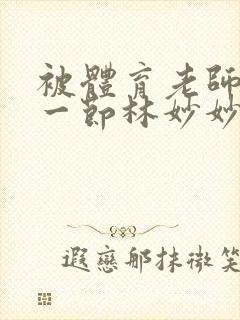 被體育老師
一節林妙妙
遐戀那抹微笑